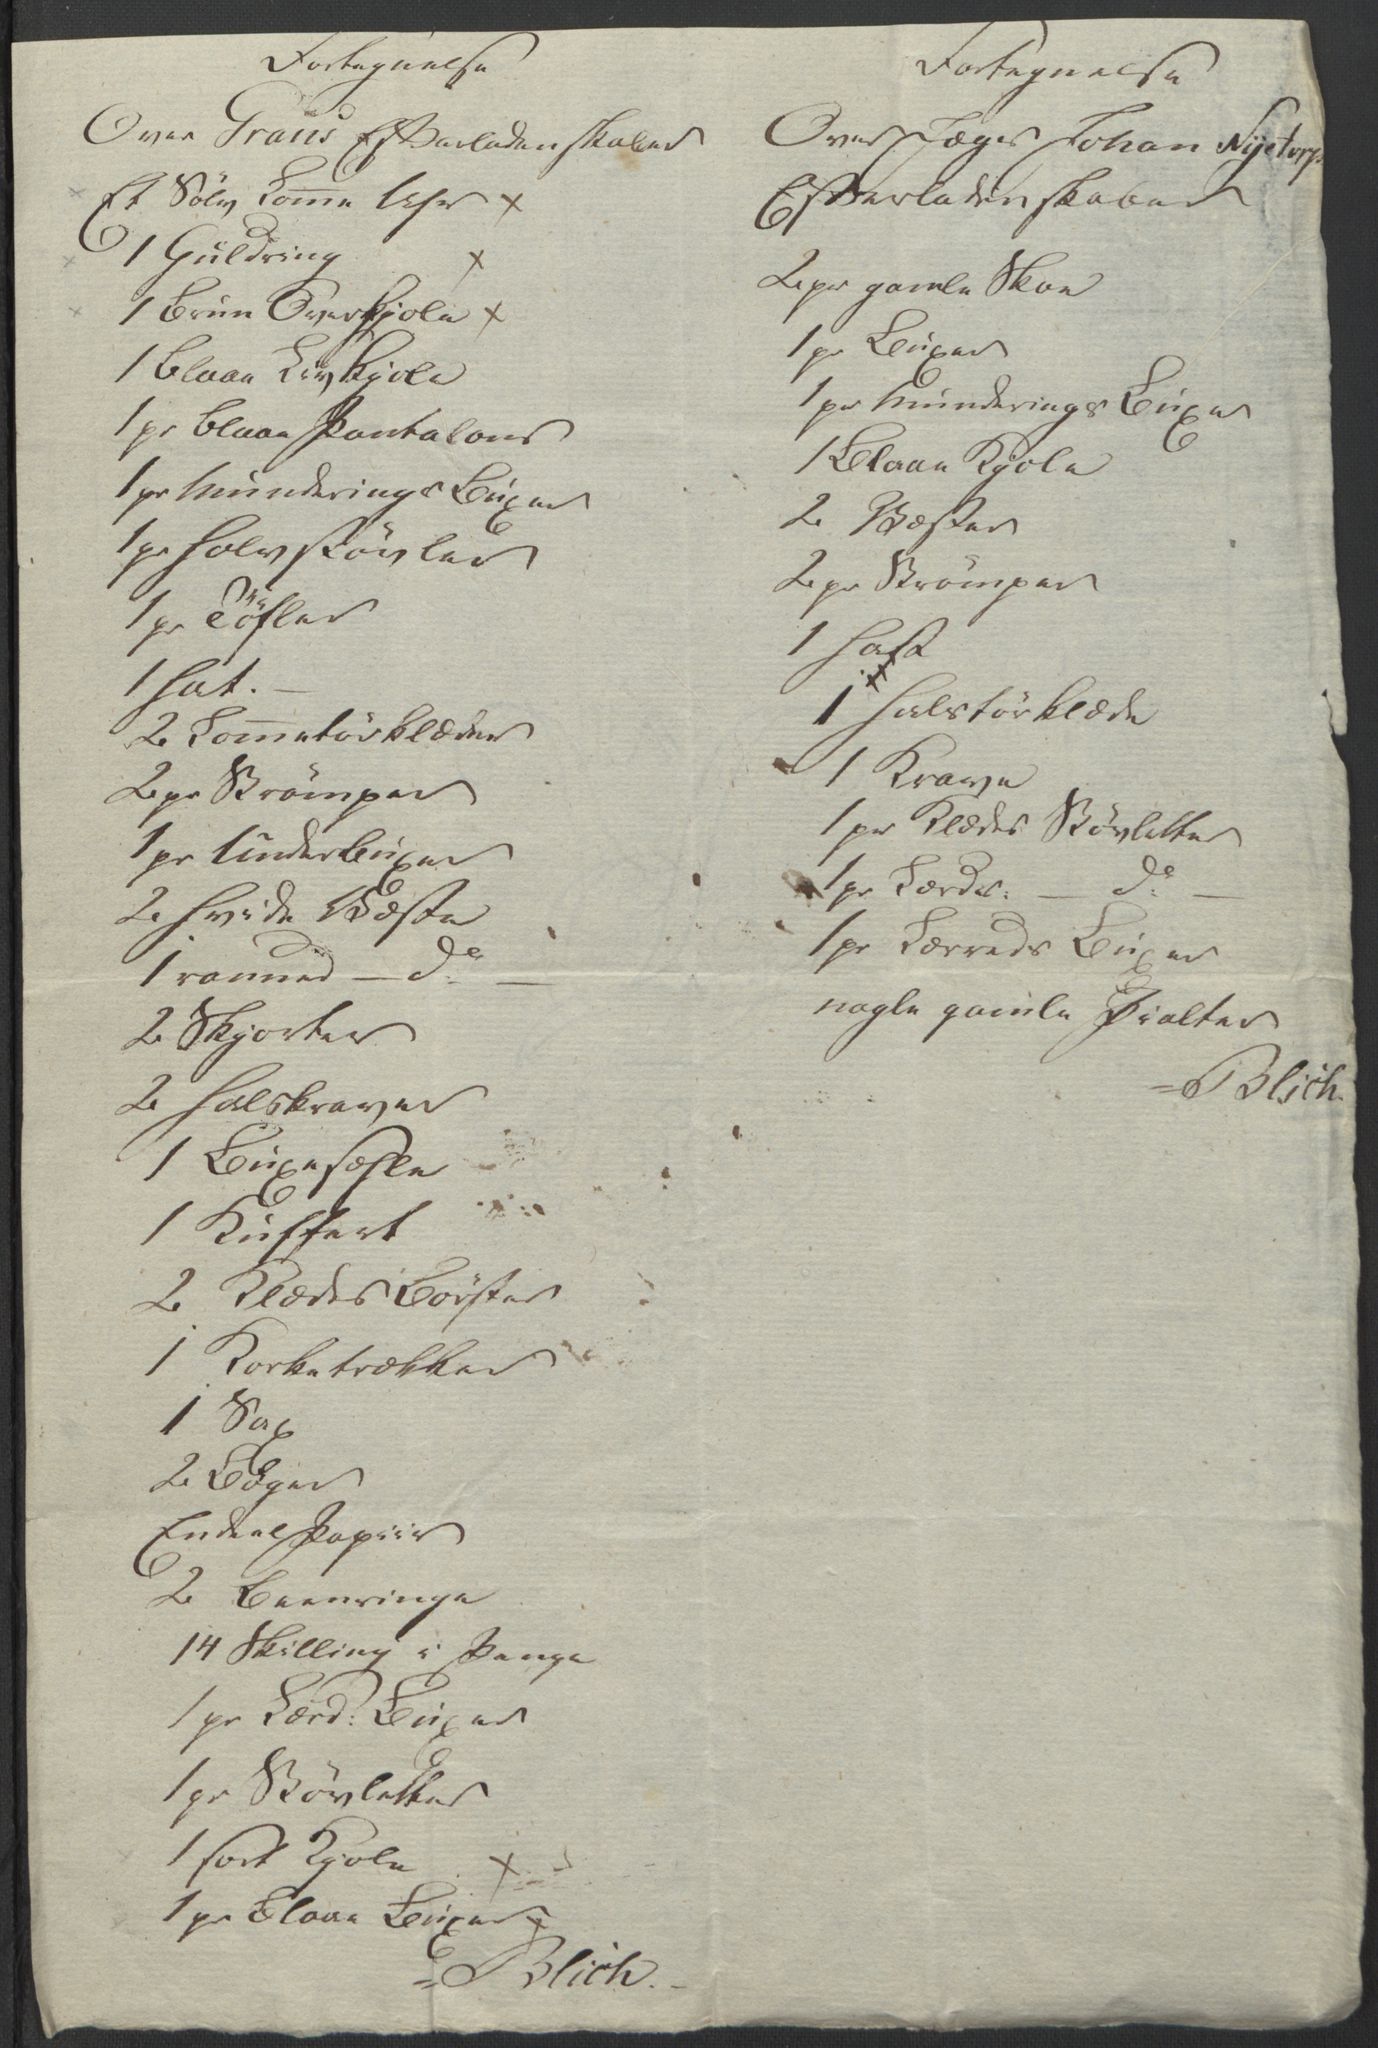 Fortegnelse
Over Trans Efterladenskaber
Et Sölv Lomme Uhr x
1 Guldring x
1 brun Overkjole x
1 blaae Livkjole
1 pr blaae Pantalons
1 pr Munderings Buxer
1 pr Halvstövler
1 pr Töfler
1 Hat. —
2 Lommetörklæder
2 pr Strömper
1 pr Underbuxer
2 Hvide Væste
1 ranned — do —
2 Skjorter
2 Halskraver
1 Buxesehle
1 Kuffert
2 Klædes Börster
1 Korketrækker
1 Sax
2 Böger
Endeel Papiir
2 Beenringe
14 Skilling i Penge
1 pr Lærd: Buxer
1 pr Stövletter
1 sort Kjole x
1 pr Blaae Buxer x
= Blich. -
Fortegnelse
Over Jæger Johan Nijetorp
Efterladenskaber
2 pr gamle Skoe
1 pr Buxer
1 pr Munderings Buxer
1 Blaae Kjole
2 Væster
2 pr Strömper
1 Hatt
1 Halstörklæde
1 Krave
1 pr Klædes Stövletter
1 pr Lærds: — do —
1 pr Lærreds Buxer
nogle gamle Pialter
= Blich.